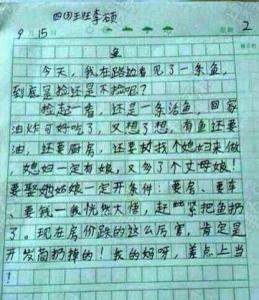 四(2)班李硕
9月15日
2
鱼
今天，我在路边看见了一条鱼，
到底是捡还是不捡呢？
捡起一看，还是一条活鱼，回家
油炸可好吃了，又想了想，有鱼还要
油，还要厨房，还要找个媳妇来做
，媳妇一定有娘，又多了个丈母娘！
要娶她姑娘一定开条件：要房、要车、
要钱…我恍然大悟，赶紧把鱼扔
了。现在房价跌的这么厉害，肯定是
开发商扔掉的！我的妈呀，差点上当
！